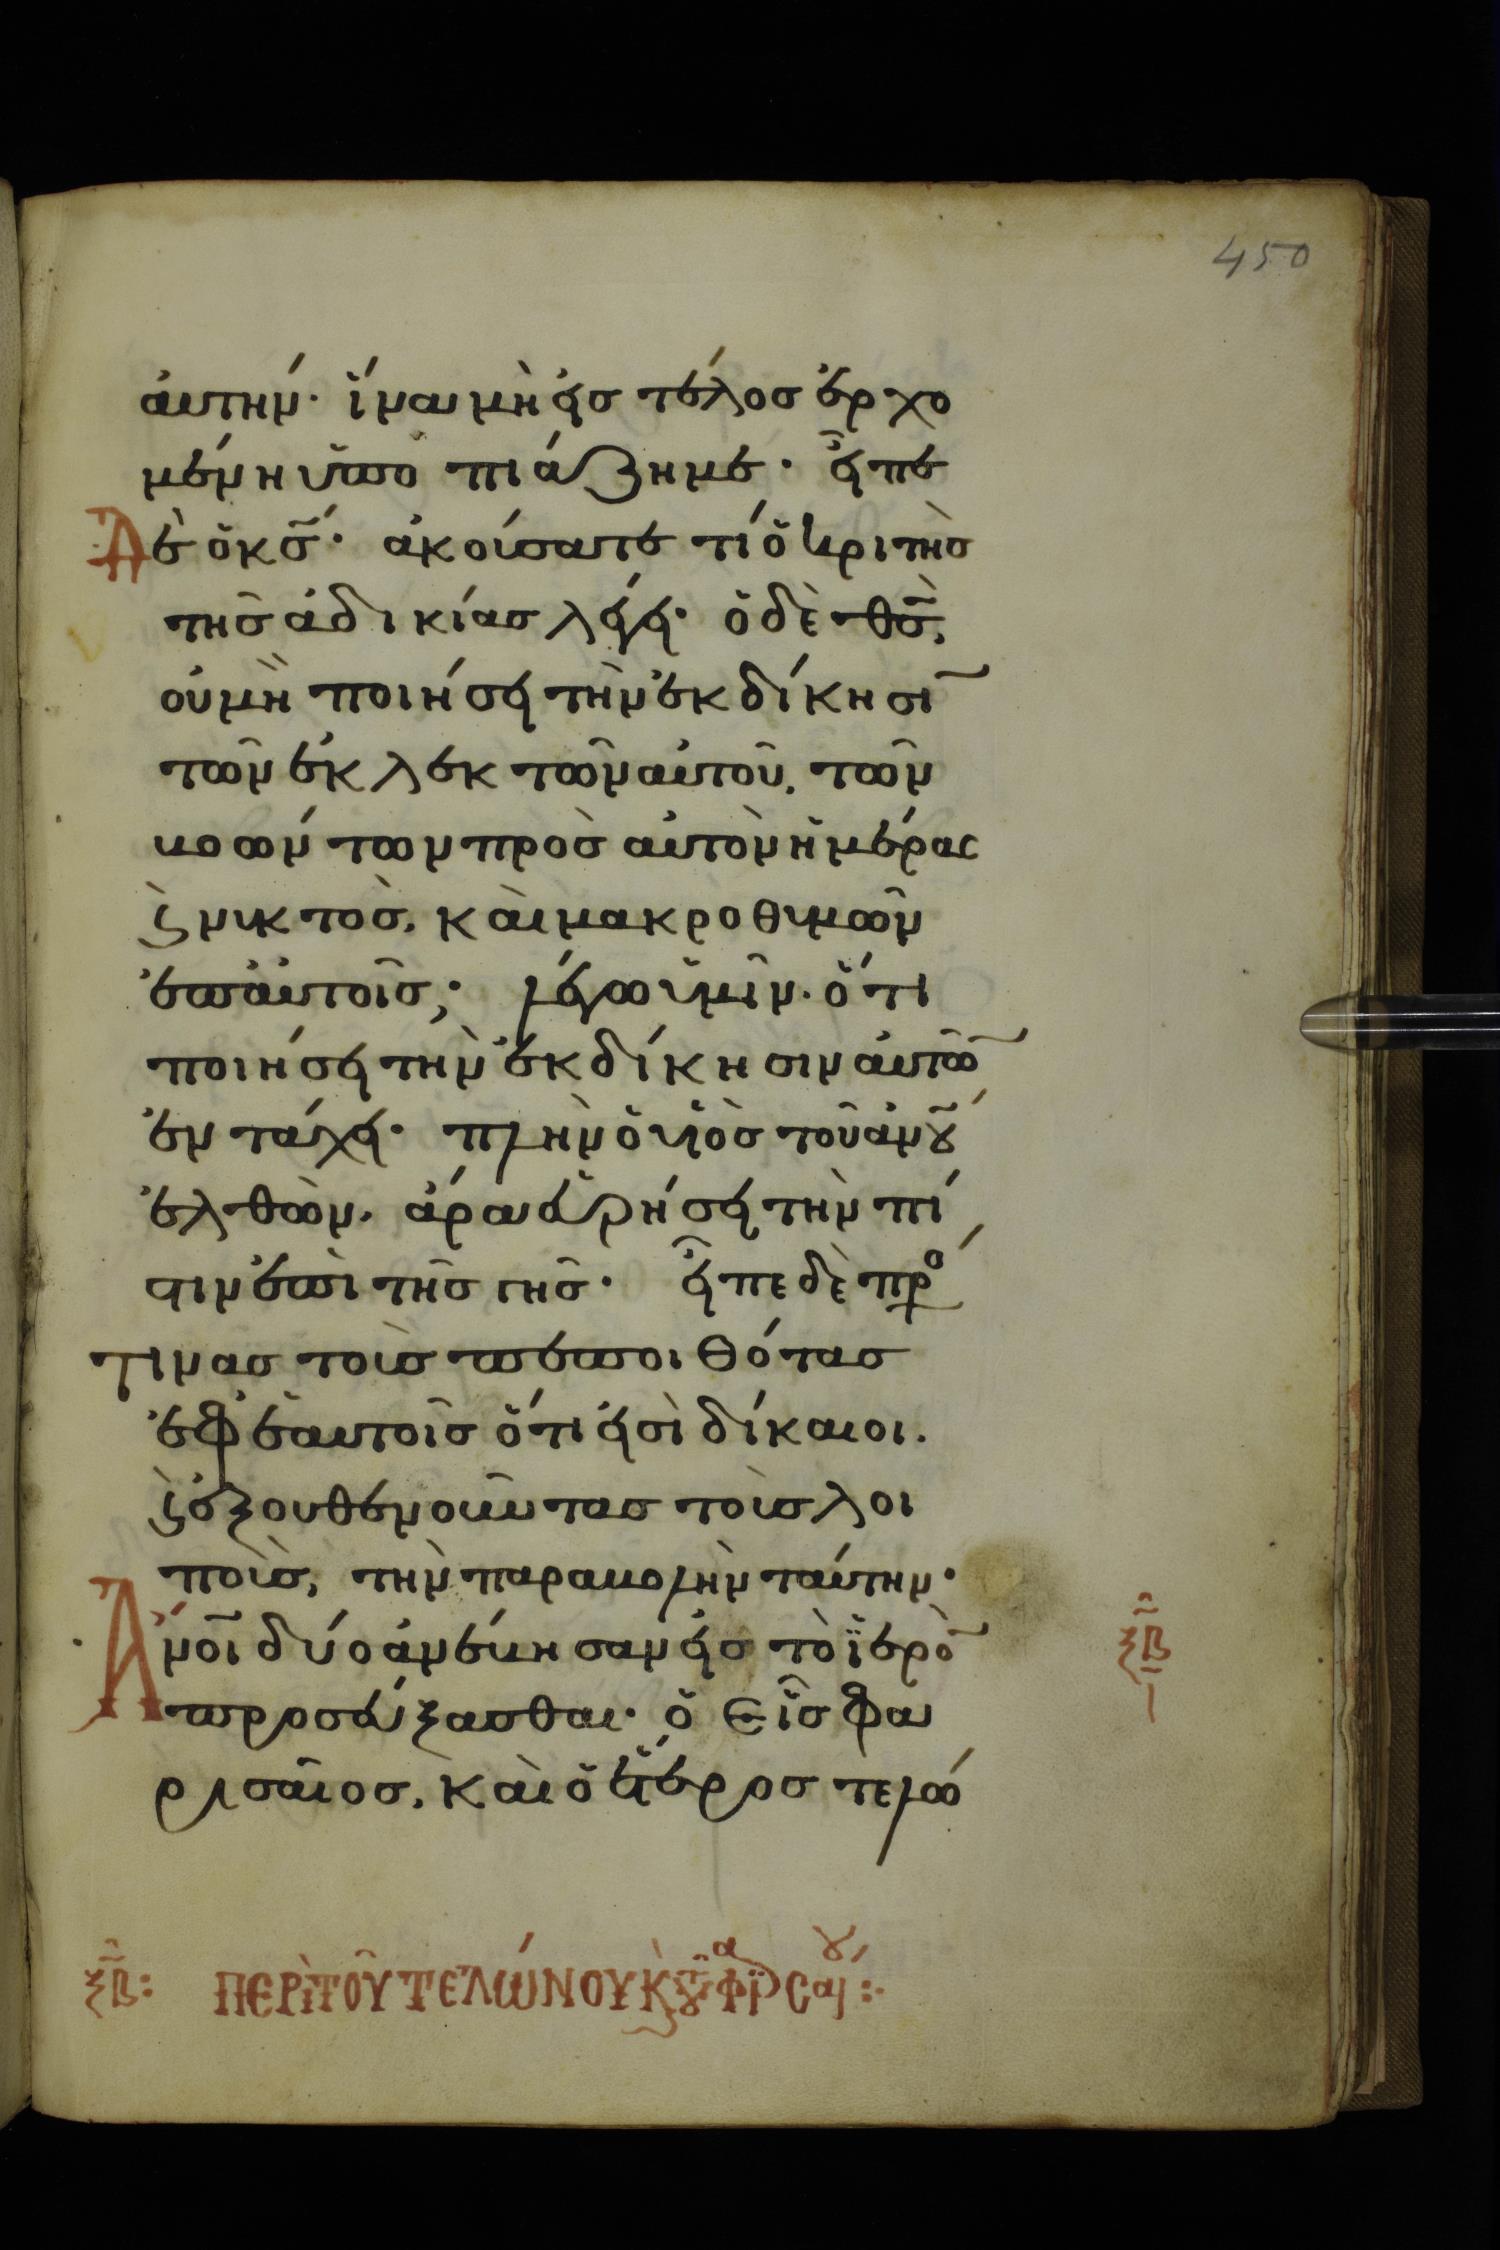 450
ἀυτήν· ἵνα μὴ ἐισ τέλοσ ἐρχο
μένη ὑπο πιάζη με· εἶπε
Δὲ ὁ κσ̄· ἀκούσατε τί ὁ κριτὴσ
τῆσ ἀδικίασ λέγει· ὁ δὲ θσ̄,
οὐ μὴ ποιήσει τὴν ἐκδίκησῑ
τῶν ἐκλεκτῶν αὐτοῦ, τῶν
βοών των πρὸσ αὐτὸν ἡμέρας
ϛ νυκτὸσ, κὰι μακροθυμῶν
ἐπ ἀυτοῖσ; λέγω ὑμῖν· ὅτι
ποιήσει τὴν ἐκδίκησιν ἀυτῶ
ἐν τάχει· πλὴν ὁ υἱὸσ τοῦ ἀν̄ου
ἐλθὼν· ἆρα εὑρήσει τὴν πί
στιν ἐπὶ τῆσ γῆσ· εἶπε δὲ πρό
τινασ τοὺσ πεποιθότασ
ἐφ ἑαυτοῖσ ὅτι ἐισὶ δίκαιοι.
ϛ ἐξουθενοῦντασ τοὺσ λοι
ποὺσ, τὴν παραβολὴν ταύτην·
Ἄν̄οι δύο ἀνέβησαν ἐισ τὸ ἱερὸ
προσεύξασθαι· ὁ εἷσ φα
ρισαῖοσ, κὰι ὁ ἕτεροσ τελώ
ξβ
ξβ: ΠΕΡῚ ΤΟΥ͂ ΤΕΛΏΝΟΥ Κ̀ ΤΟΥ͂ ΦΑΡΙΣΑΊΟΥ:·